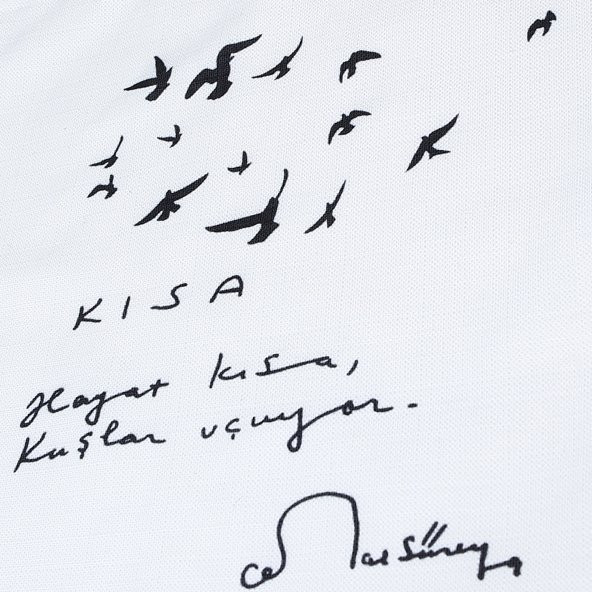 KISA
Hayat kısa,
Kuşlar uçuyor.
Cemal Süreya